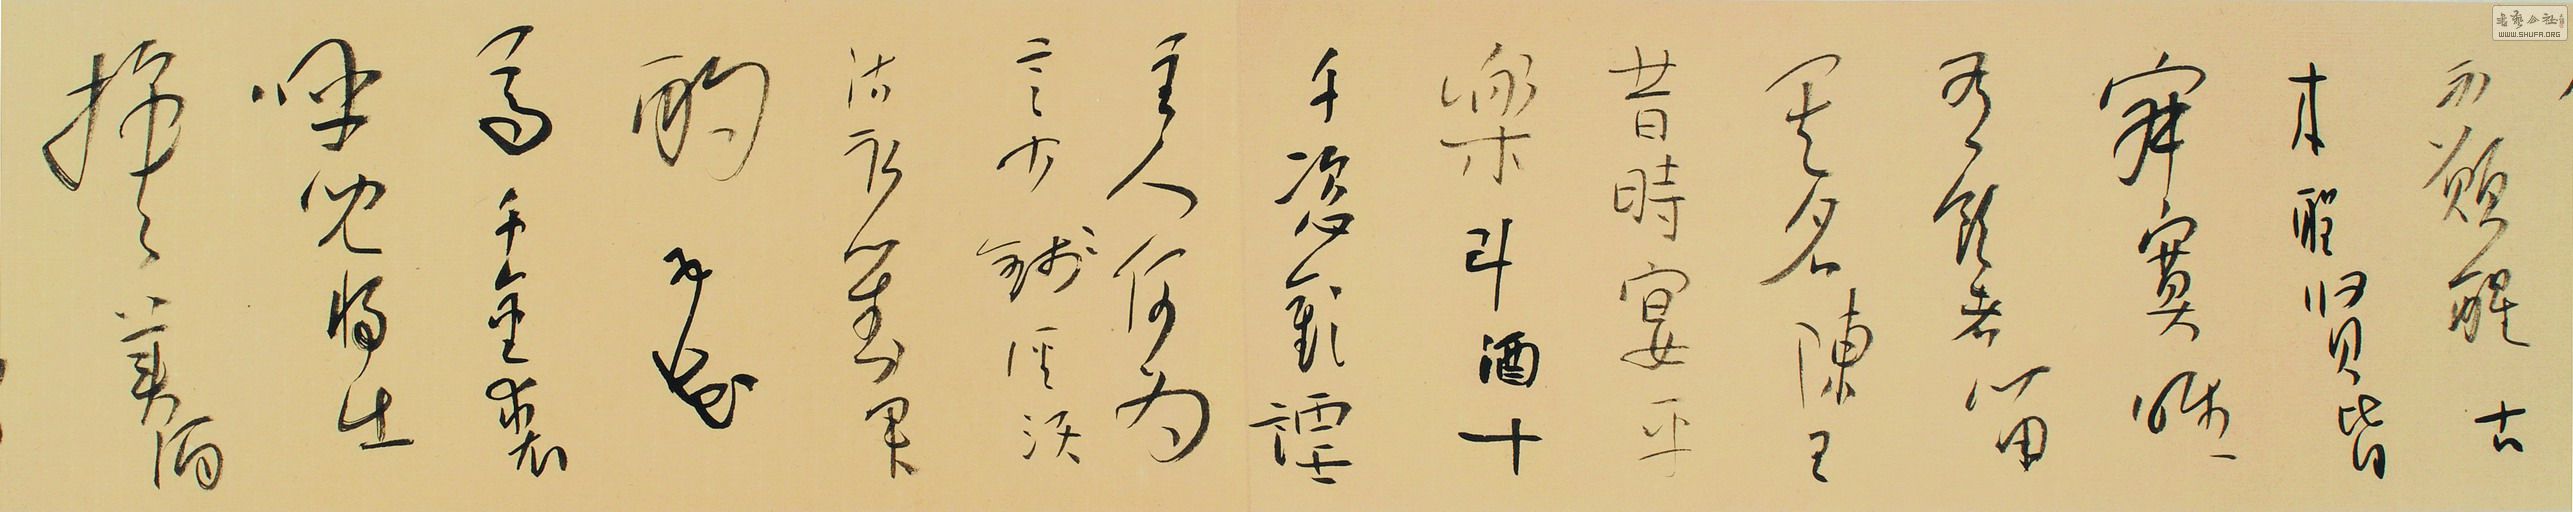 不願醒古
来聖贤皆
寂寞惟
有飲者留
其名陳王
昔時宴平
樂斗酒十
千恣歡謔
主人何为
言少錢徑須
沽取對君
酌五花
馬千金裘
呼兒将出
換美酒
書藝公社
WWW.SHUFA.ORG